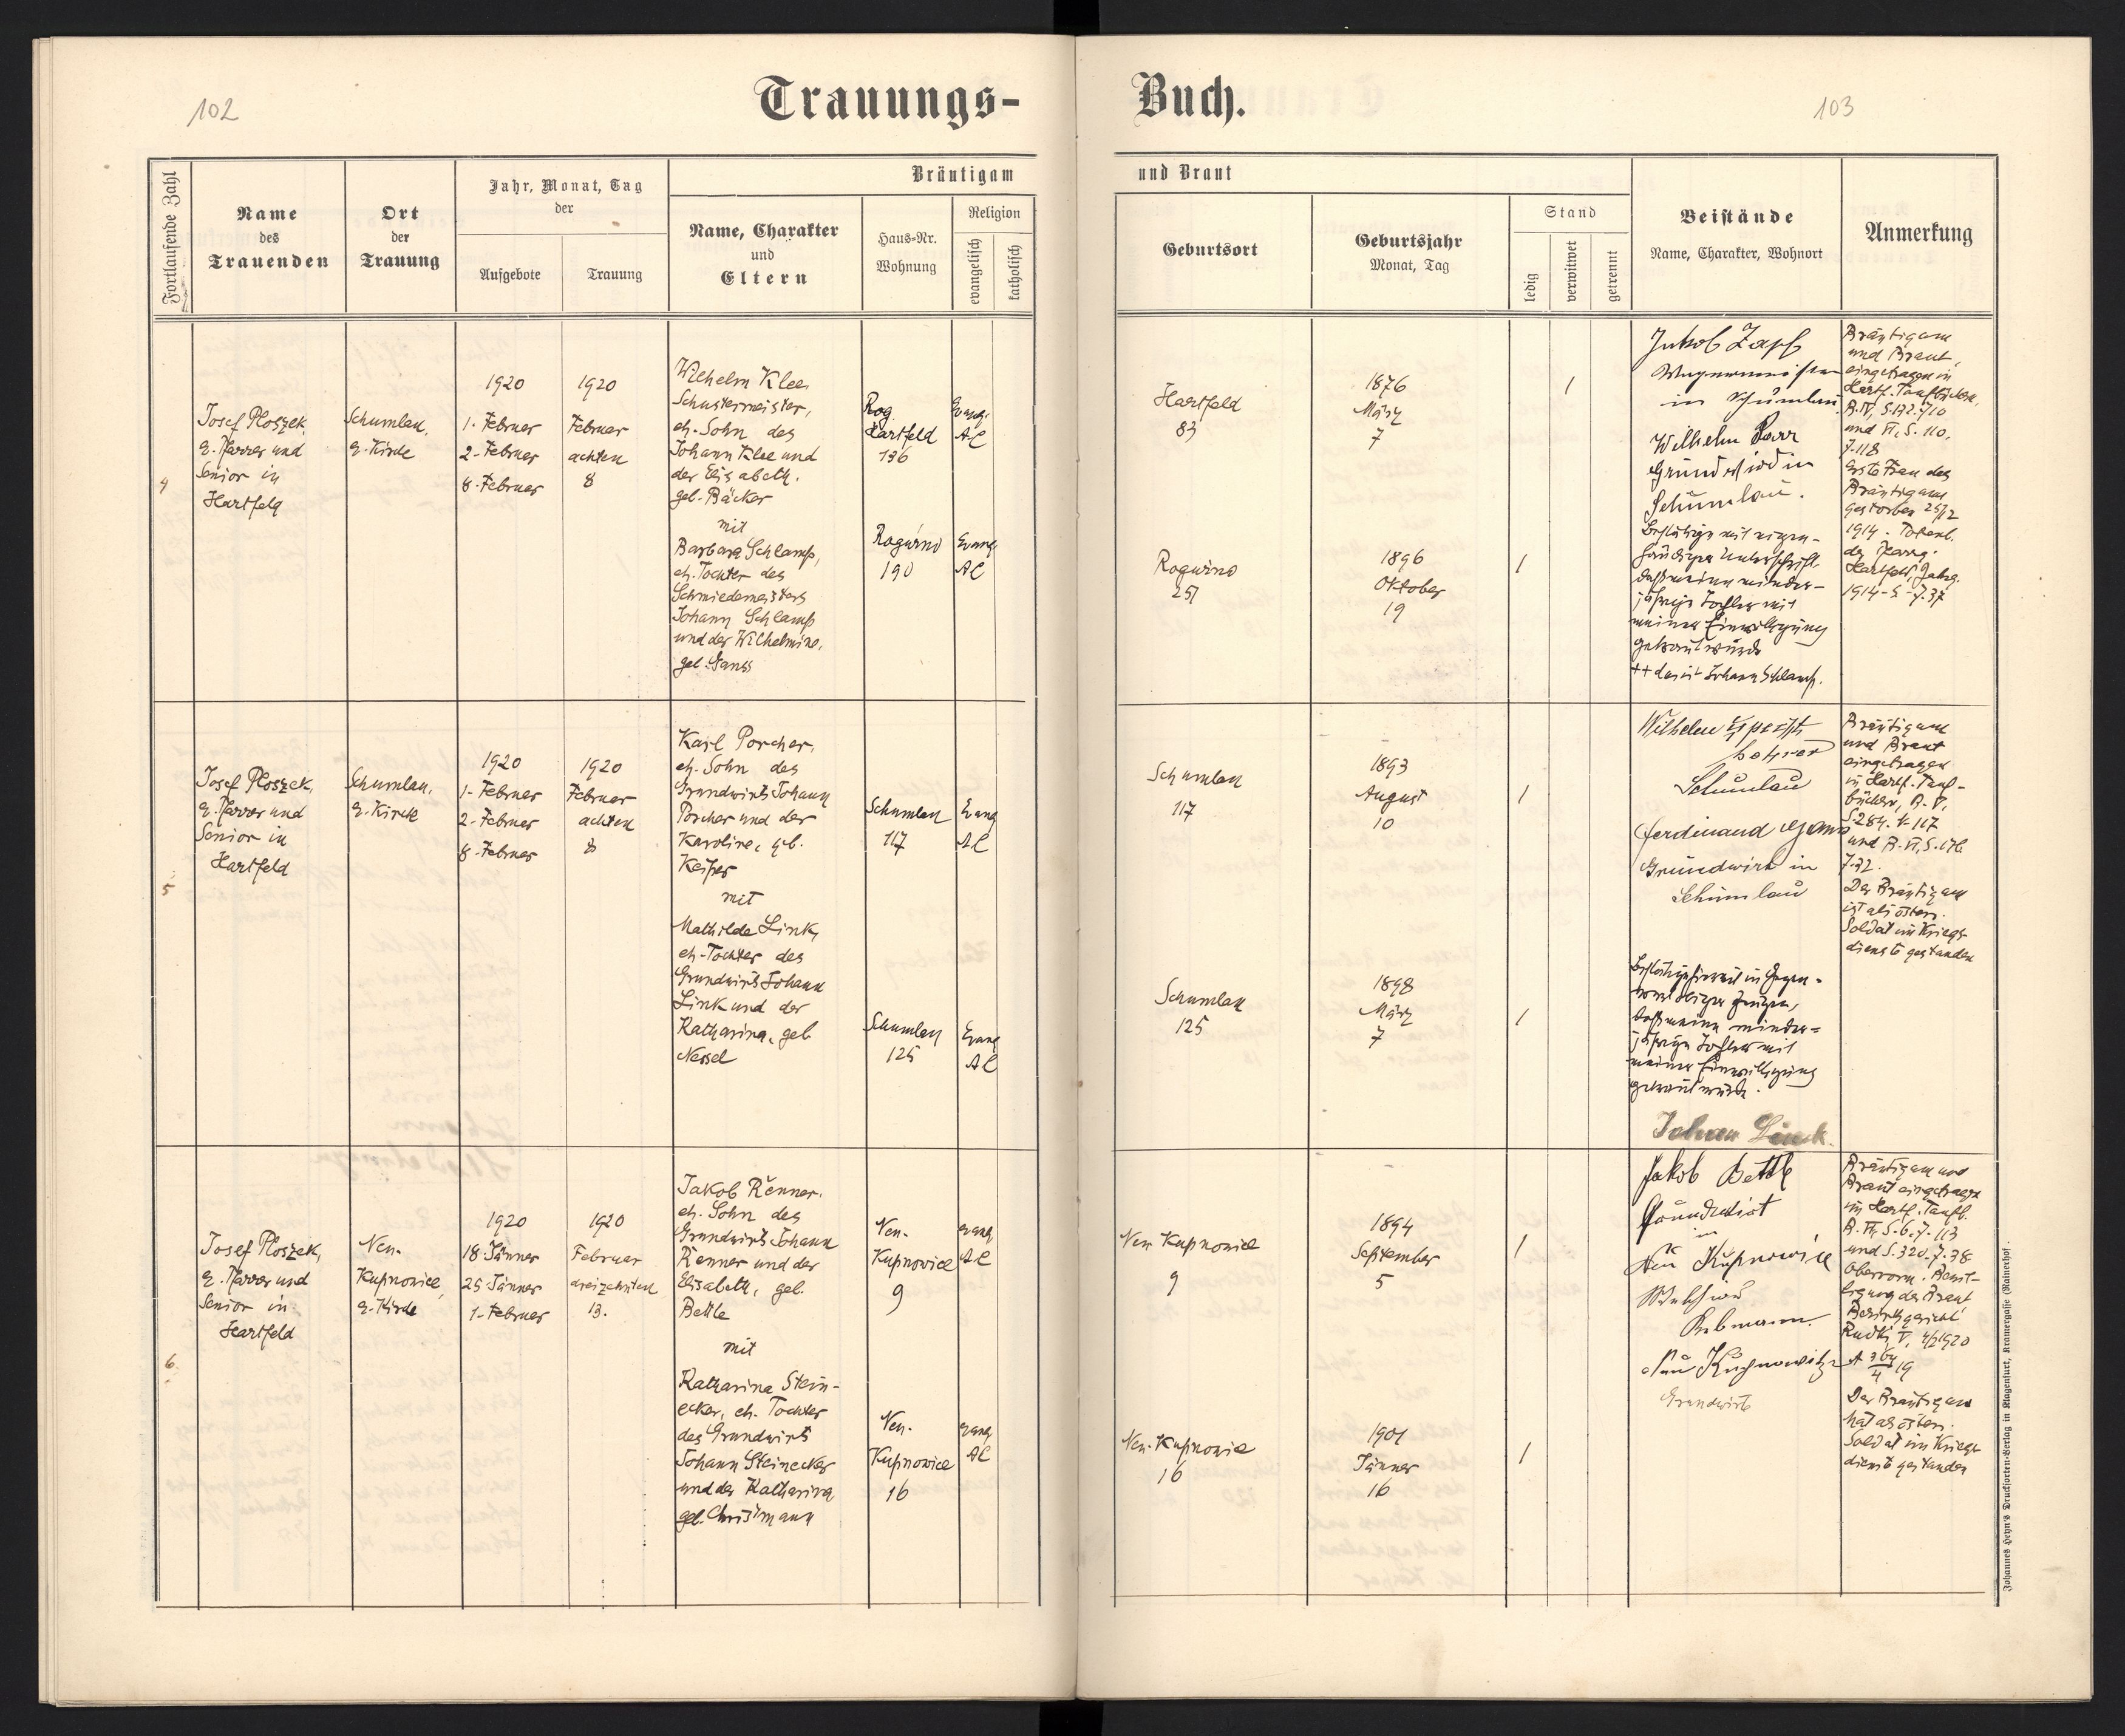 102
Trauungs-
Fortlaufende Zahl
Name
des
Trauenden
Ort
der
Trauung
Jahr, Monat, Tag
der
Aufgebote
Trauung
Bräutigam
Name, Charakter
und
Eltern
Haus-Nr.
Wohnung
Religion
evangelisch
katholisch
4
Josef Ploszek,
e. Pfarrer und
Senior in
Hartfeld
Schumlau,
e. Kirche
1920
1. Februar
2. Februar
8. Februar
1920
Februar
achten
8
Wilhelm Klee,
Schustermeister,
eh. Sohn des
Johann Klee und
der Elisabeth,
geb. Bäcker
mit
Barbara Schlamp,
eh. Tochter des
Schmiedemeisters
Johann Schlamp
und der Wilhelmine,
geb. Gans
Hartfeld
136
Evang.
AC
Roguźno
190
Evang.
AC
5
Josef Ploszek,
e. Pfarrer und
Senior in
Hartfeld
Schumlau,
e. Kirche
1920
1. Februar
2. Februar
8. Februar
1920
Februar
achten
8
Karl Porcher,
eh. Sohn des
Grundwirts Johann
Porcher und der
Karoline, geb.
Keiper
mit
Mathilde Link,
eh. Tochter des
Grundwirts Johann
Link und der
Katharina, geb.
Nessel
Schumlau
117
Evang
AC
Schumlau
125
Evang
AC
6.
Josef Ploszek,
e. Pfarrer und
Senior in
Hartfeld
Neu-
Kupnowice,
e. Kirche
1920
18 Jänner
25 Jänner
1. Februar
1920
Februar
dreizehnten
13.
Jakob Renner,
eh. Sohn des
Grundwirts Johann
Renner und der
Elisabeth, geb.
Bettle
mit
Katharina Stein-
ecker, eh. Tochter
des Grundwirts
Johann Steinecker
und der Katharina
geb. Christmann
Neu-
Kupnowice
9
evang
AC
Neu-
Kupnowice
16
evang
AC
Buch.
103
und Braut
Geburtsort
Geburtsjahr
Monat, Tag
Stand
ledig
verwitwet
getrennt
Beistände
Name, Charakter, Wohnort
Anmerkung
Hartfeld
83
1876
März
7
/
Roguźno
1896
Oktober
19
/
Jakob Zapf
Wagnermeister
in Schumlau
Wilhelm
Grundwirt in
Schumlau.
Bestätige mit eigen-
händiger Unterschrift
daß meine minder-
jährige Tochter mit
meiner Einwilligung
getraut wurde
Johann Schlamp.
Bräutigam
und Braut,
eingetragen in
Hartf. Taufbüchern,
und VI, S. 110,
Z. 118
Erste Frau des
Bräutigams
gestorben 25/12
1914. Totenb.
der Pfarrg.
Hartfeld, Jahrg.
1914
Schumlau
117
1893
August
10
/
Schumlau
125
1898
März
7
/
Wilhelm
Lehrer
Schumlau
Ferdinand Gans
Grundwirt in
Schumlau
Bestätige hiermit in Gegen-
wart obiger Zeugen,
daß meine minder-
jährige Tochter mit
meiner Einwilligung
getraut wurde.
Johann Link
Bräutigam
und Braut
eingetragen
in Hartf. Tauf-
büchern, B. V,
Der Bräutigam
ist als österr.
Soldat im Kriegs-
dienste gestanden
Neu Kupnowice
9
1894
September
5
/
Neu-Kupnowice
16
1901
Jänner
16
/
Jakob Bettle
Grundwirt
in
Neu Kupnowice
Rebmann
Neu Kupnowitz
Grundwirt
Bräutigam und
Braut eingetragen
in Hartf. Taufb.
und S. 320. Z. 38
Oberverm. Bewil-
ligung der Braut
Bezirksgericht
Rudki
Der Bräutigam
hat als österr.
Soldat im Kriegs-
dienste gestanden
Johannes Heyn's Drucksorten-Verlag in Klagenfurt, Kramergasse (Rainerhof).